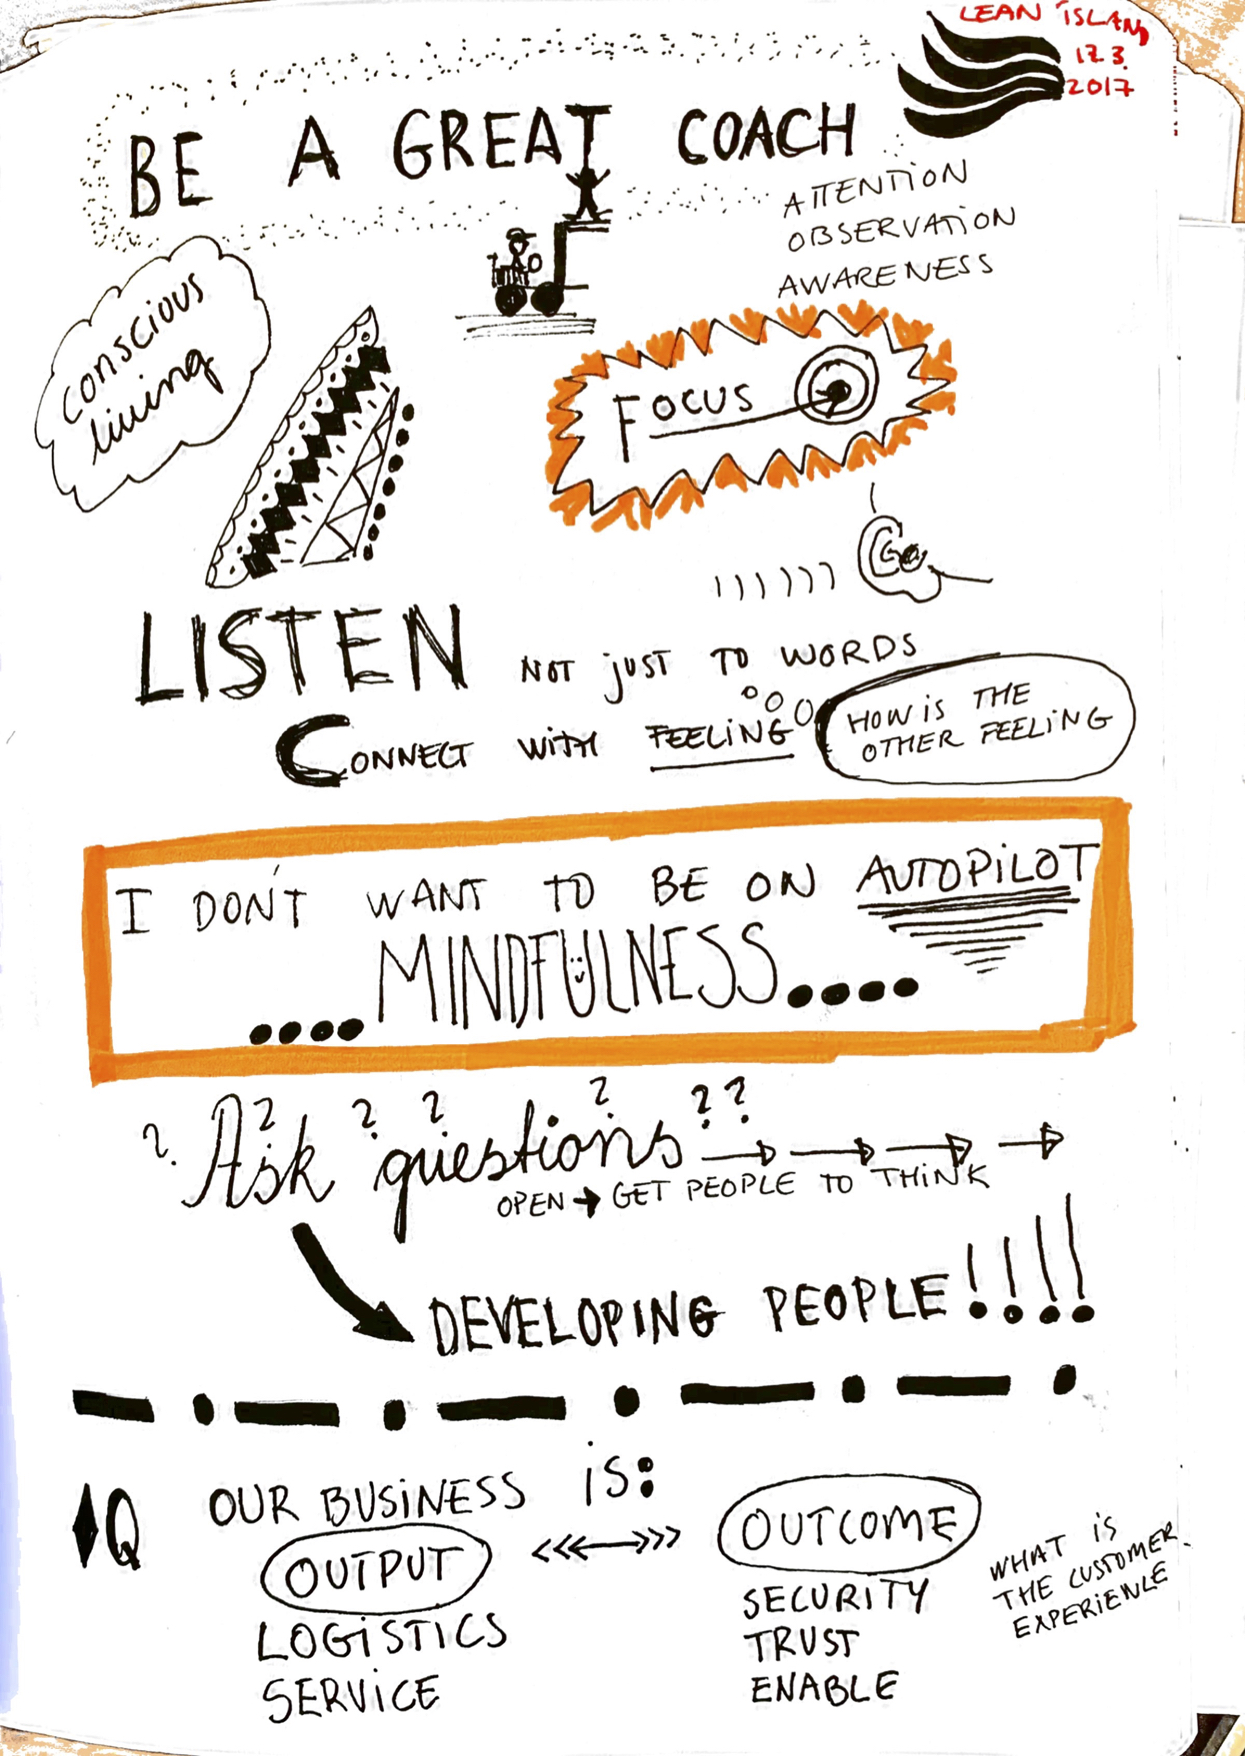 LEAN iSLAND
12.3.
2017
BE A GREAT COACH
ATTENTiON
OBSERVATiON
AWARENESS
conscious
living
FOCUS
LISTEN NOT jUST TO WORDS
CONNECT WiTH FEELiNG
HOW iS THE
OTHER FEELiNG
I DON'T WANT TO BE ON AUTOPiLOT
....MINDFULNESS....
? ? ? ? ? ? ?
Ask questions
OPEN → GET PEOPLE TO THiNK
DEVELOPING PEOPLE!!!!
Q OUR BUSiNESS iS:
OUTPUT <<<—>>> OUTCOME
LOGiSTICS
SERViCE
SECURITY
TRUST
ENABLE
WHAT iS
THE CUSTOMER
EXPERiENCE